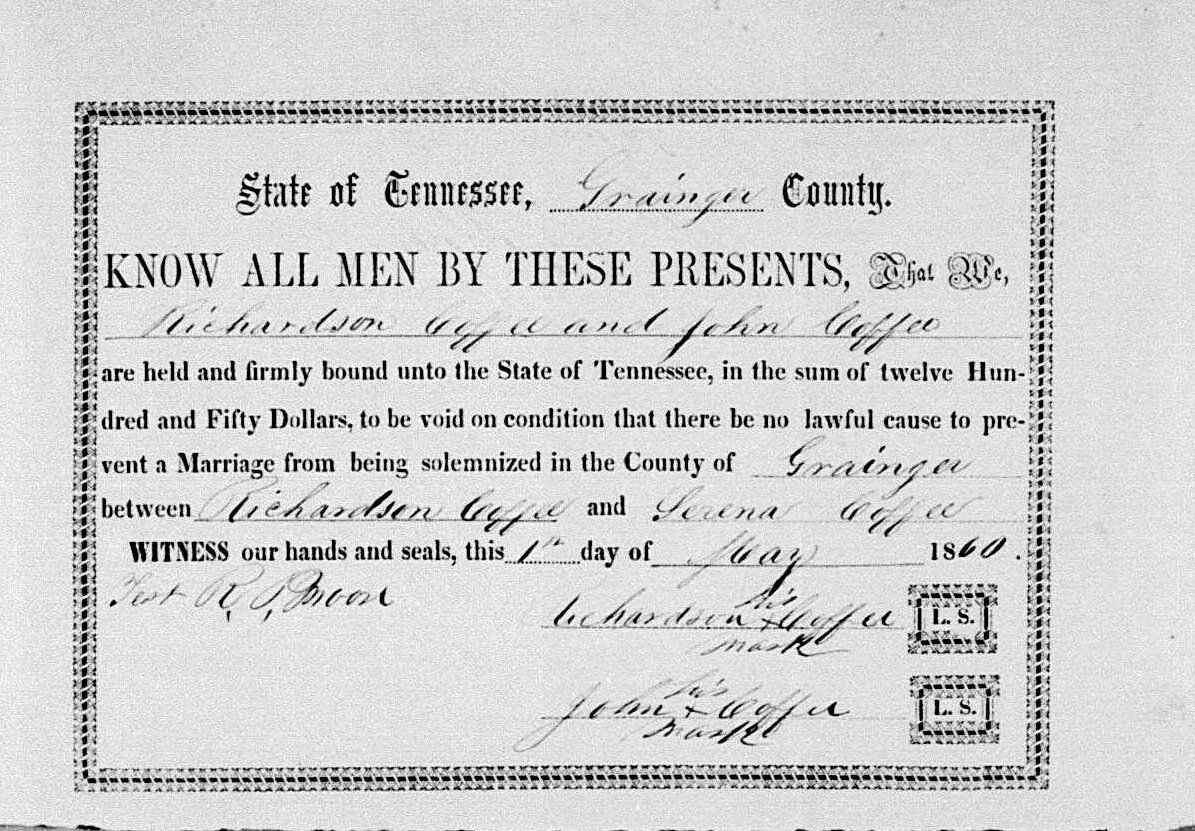 State of Tennessee, Grainger County.
KNOW ALL MEN BY THESE PRESENTS, That We,
Richardson Coffee and John Coffee
are held and firmly bound unto the State of Tennessee, in the sum of twelve Hun-
dred and Fifty Dollars, to be void on condition that there be no lawful cause to pre-
vent a Marriage from being solemnized in the County of Grainger
between Richardson Coffee and Serena Coffee
WITNESS our hands and seals, this 1st day of May 1860.
Test R. P. Moore
his
Richardson + Coffee L. S.
mark
his
John + Coffee L. S.
mark